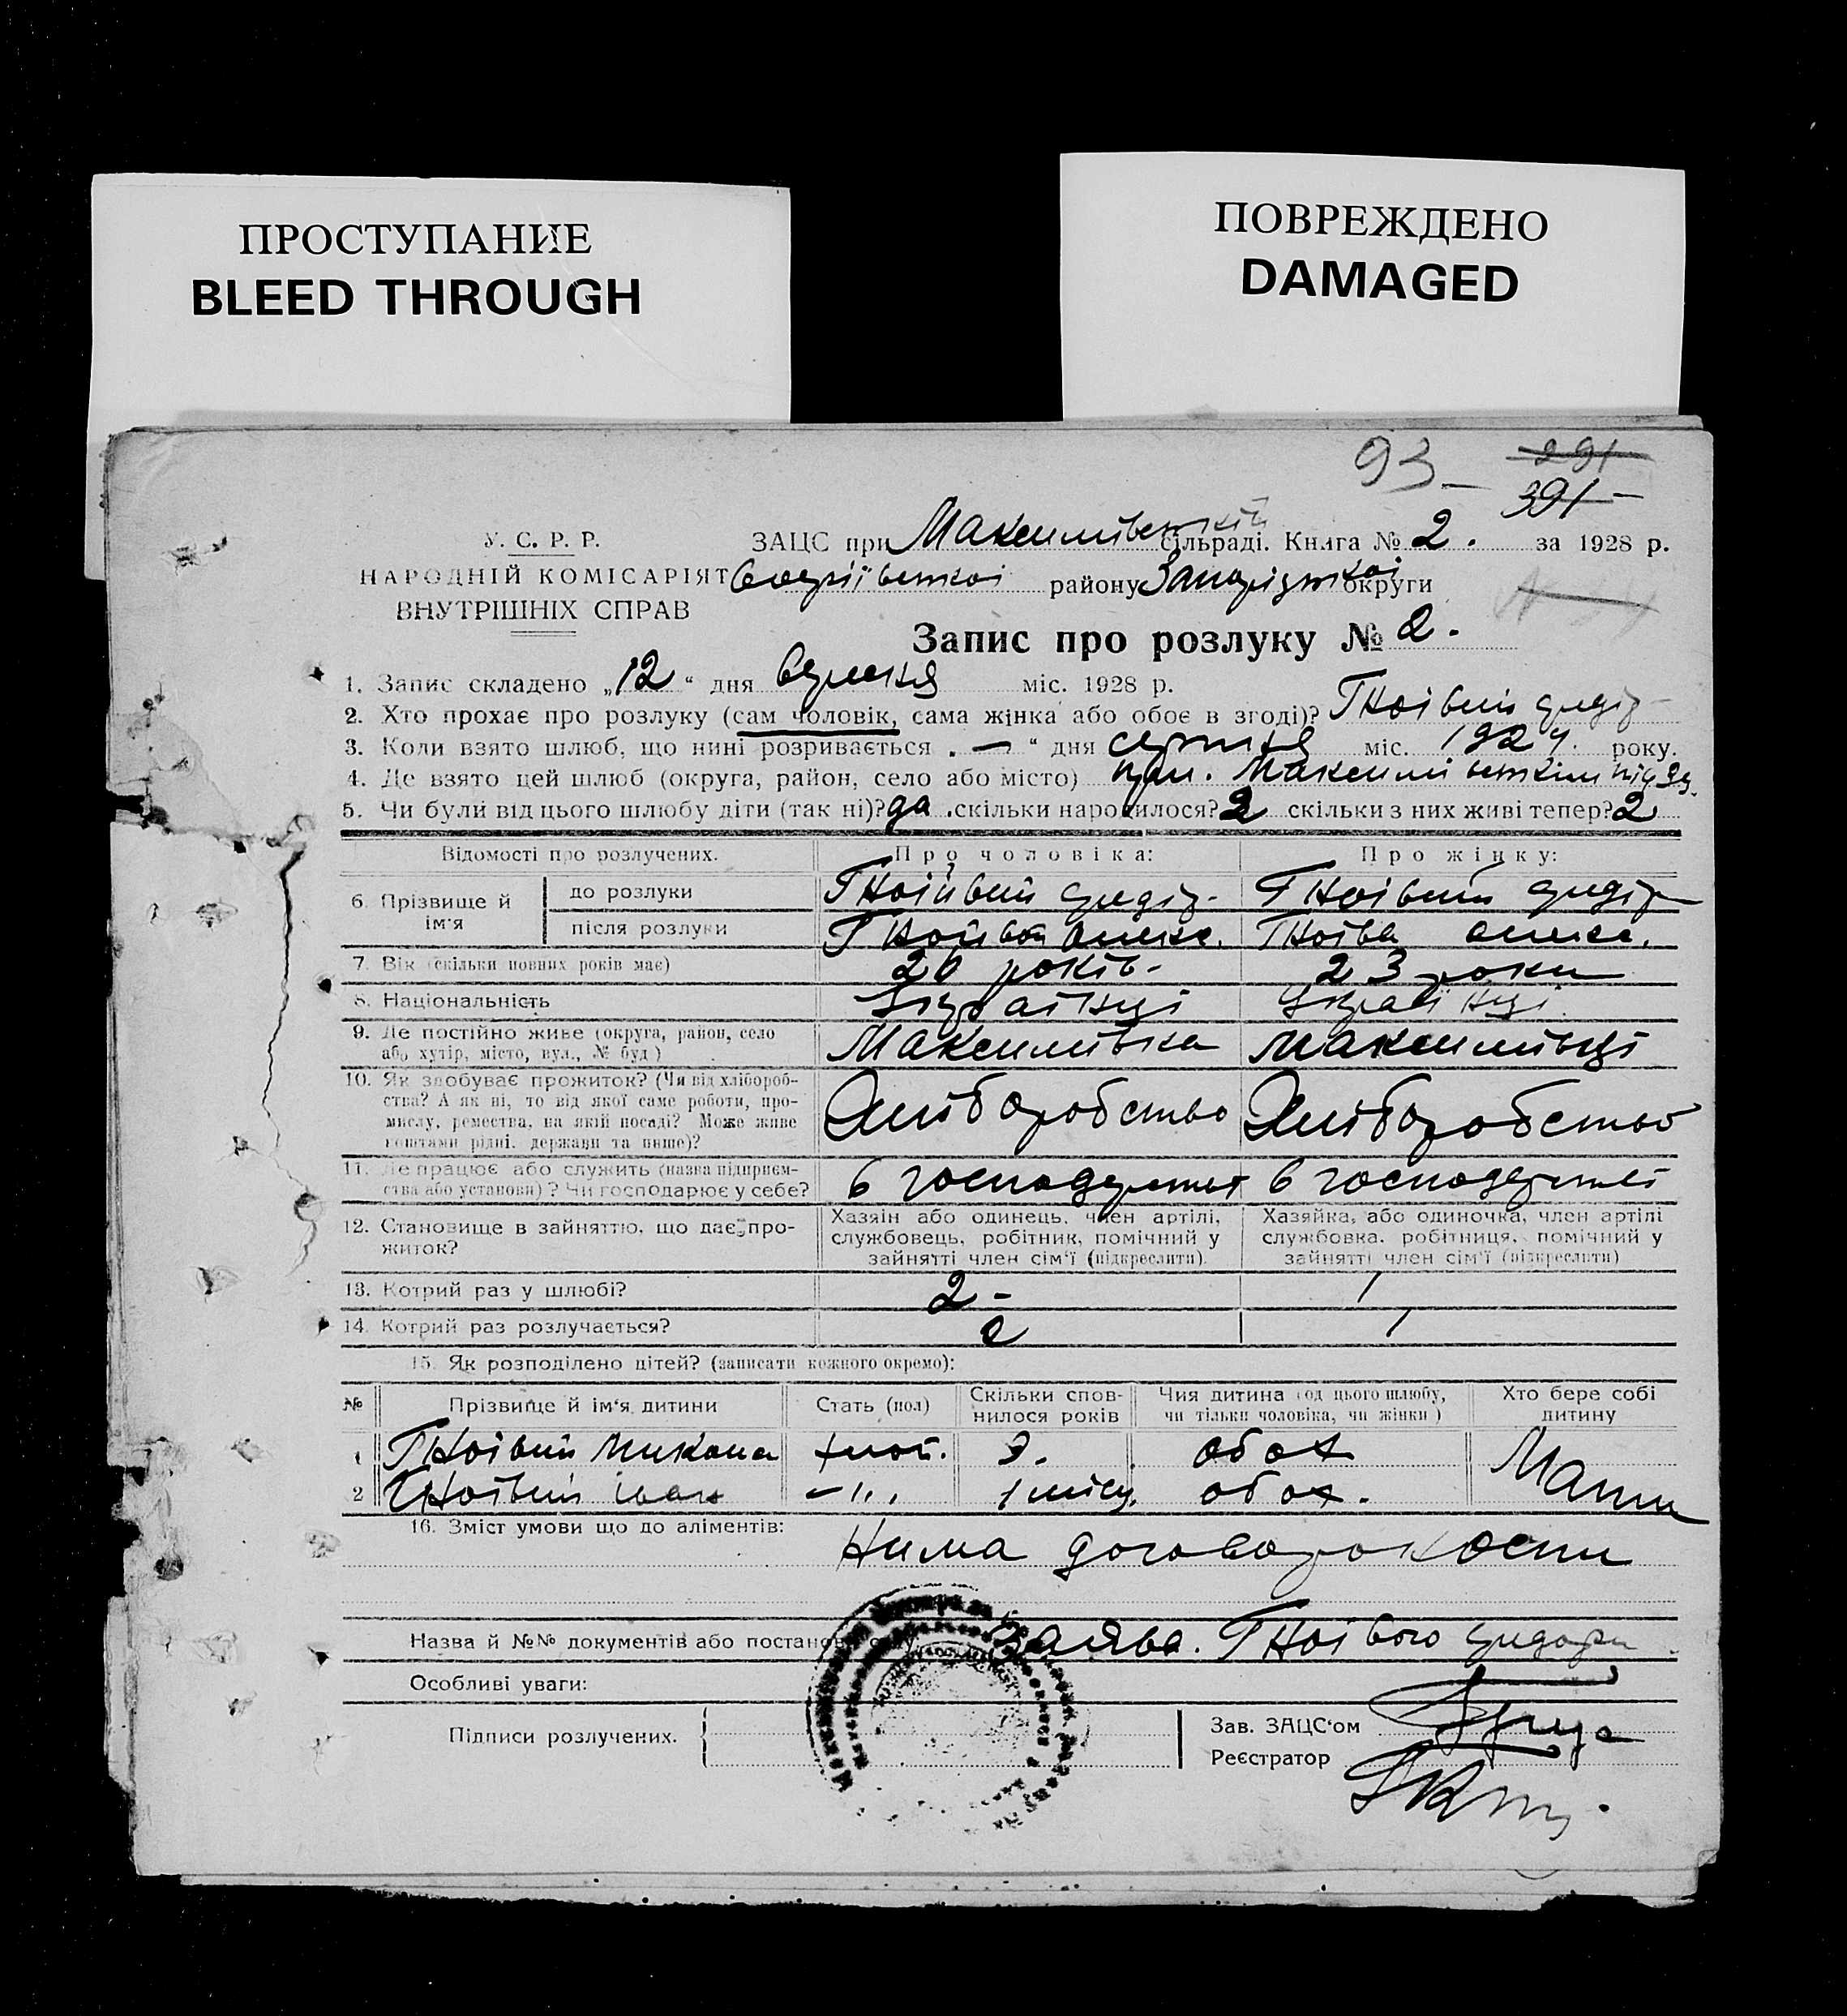 ПРОСТУПАНИЕ
BLEED THROUGH
ПОВРЕЖДЕНО
DAMAGED
93 —
291
391 —
У. С. Р. Р.
НАРОДНІЙ КОМІСАРІЯТ
ВНУТРІШНІХ СПРАВ
ЗАЦС при Максимівській Сільраді. Книга № 2. за 1928 р.
району Запорізької округи
Запис про розлуку № 2.
1. Запис складено „12“ дня вересня міс. 1928 р.
2. Хто прохає про розлуку (сам чоловік, сама жінка або обоє в згоді)? Гноівий
3. Коли взято шлюб, що нині розривається „—“ дня серпня міс. 1924. року.
4. Де взято цей шлюб (округа, район, село або місто) при. Максимівскім
5. Чи були від цього шлюбу діти (так ні)? да скільки народилося? 2 скільки з них живі тепер? 2
Відомості про розлучених. Про чоловіка: Про жінку:
6. Прізвище й ім'я
до розлуки Гноівий Гноівий
після розлуки Гноівий Гноіва
7. Вік (скільки повних років має) 20 років- 23 роки
8. Національність Українці Українці
9. Де постійно живе (округа, район, село
або хутір, місто, вул., № буд.) Максимівка Максимівці
10. Як здобуває прожиток? (Чи від хлібороб-
ства? А як ні, то від якої саме роботи, про-
мислу, ремества, на якій посаді? Може живе
коштами рідні, держави та инше)? Хліборобство Хліборобство
11. Де працює або служить (назва підприєм-
ства або установи)? Чи господарює у себе? в господерстві в господерстві
12. Становище в зайняттю, що дає про-
житок?
Хазяїн або одинець, член артілі,
службовець, робітник, помічний у
зайнятті член сім'ї (підкреслити).
Хазяйка, або одиночка, член артілі
службовка, робітниця, помічний у
зайнятті член сім'ї (підкреслити)
13. Котрий раз у шлюбі? 2 - 1
14. Котрий раз розлучається? 2 1
15. Як розподілено дітей? (записати кожного окремо):
№ Прізвище й ім'я дитини Стать (пол) Скільки спов-
нилося років Чия дитина (од цього шлюбу,
чи тільки чоловіка, чи жінки) Хто бере собі
дитину
1 Гноівий Микола хлоп. 3. обох Мати
2 Гноівий Іван —"— 1 місц. обох.
16. Зміст умови що до аліментів: Нима договорокости
Назва й №№ документів або постанов суду: Заява. Гноівого
Особливі уваги:
Підписи розлучених.
Зав. ЗАЦС'ом
Реєстратор